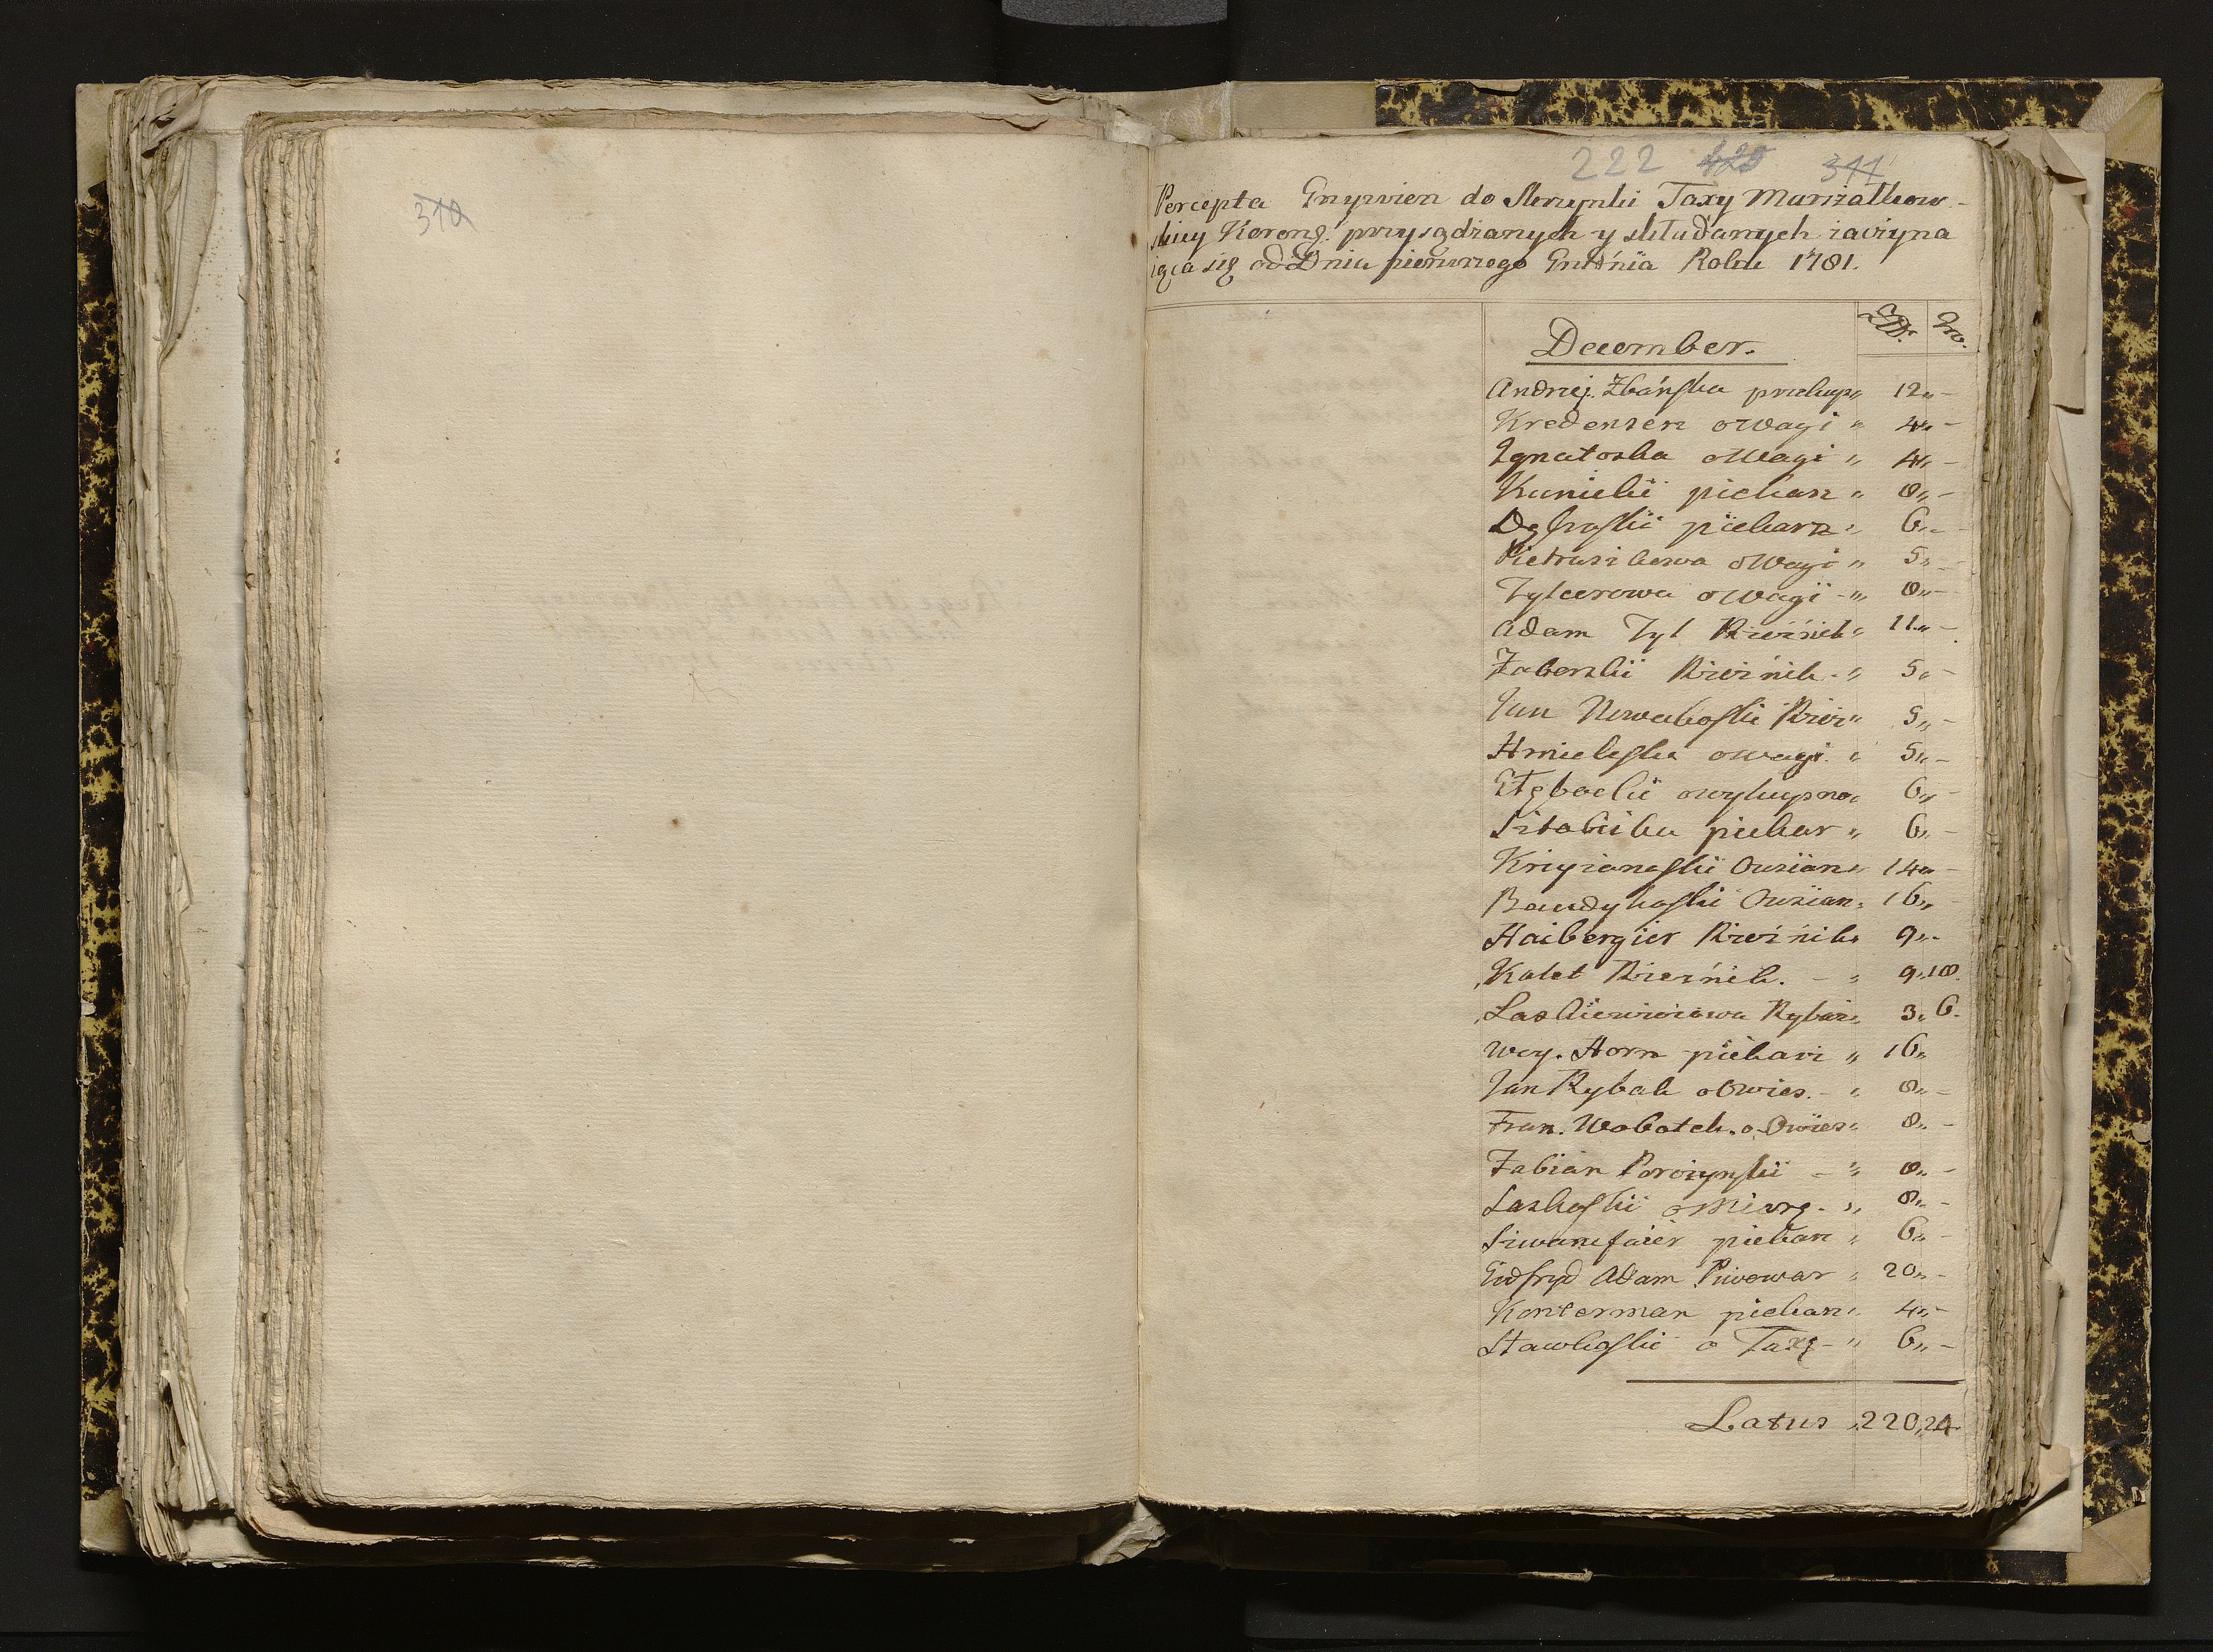 310
222 420 311
Percepta Grzywien do Skrzynki Taxy Marszałkow-
skiey Koronĝ. przysądzanych y składanych zaczyna
iąca się od Dnia pierwszego Grudnia Roku 1781.
December. Zł. Gro.
Andrzej Zbańska przekup„ 12„ -
Kredensen o Wagi „ 4„ -
Ignatoska o Wagi „ 4„ -
Kunicki piekarz „ 8„ -
Dąbroski piekarz „ 6„ -
Pietruszkowa o Wagi „ 5„ -
Tylcerowa o Wagi - „ 8„ -
Adam Tyl Rzeźnik „ 11„ -
Zaberski Rzeźnik - „ 5„ -
Jan Nowakoski Rzez„ 5„ -
Hmieleska o wagi „ 5„ -
Głęboclii o wykupno„ 6„ -
piekar „ 6„ -
Krzyzanoski Owsian„ 14„ -
Bandykoski Owsian„ 16„ -
Haibergier Rzeźnik„ 9„ -
Kalet Rzeźnik. - „ 9„ 18.
Laskiewiczowa Rybacz„ 3„ 6.
Woy. Horn piekarz „ 16„
Jan Rybak o Owies. - „ 8„ -
Fran. Wobotek. o Owies„ 8„ -
Fabian Porczynski - „ 8„ -
Laskoski o Miarę. - „ 8„ -
Szwancfaier piekarz „ 6„ -
Gidfryd Adam Piwowar „ 20„ -
Konterman piekarz„ 4„ -
Stawkoski o Taxę - „ 6„ -
Latus „ 220„ 24